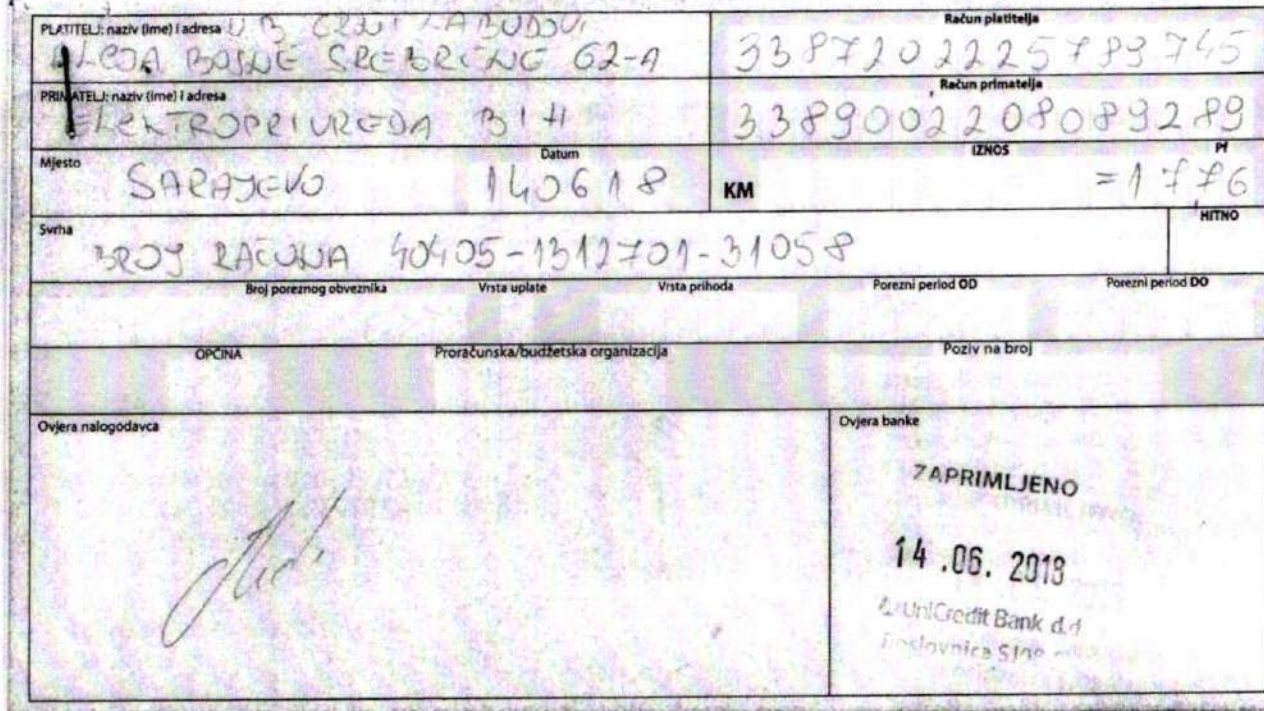 PLATITELJ: naziv (ime) i adresa
BOSNE SREBRENE 62-A
Račun platitelja
3387202225789745
PRIMATELJ: naziv (ime) i adresa
ELEKTROPRIVREDA BIH
Račun primatelja
3389002208089289
Mjesto
SARAJEVO
Datum
140618
KM
IZNOS
Pf
=1776
Svrha
BROJ RAČUNA 40405-1312701-31058
HITNO
Broj poreznog obveznika Vrsta uplate Vrsta prihoda Porezni period OD Porezni period DO
OPĆINA Proračunska/budžetska organizacija Poziv na broj
Ovjera nalogodavca
Ovjera banke
ZAPRIMLJENO
14.06. 2018
UniCredit Bank d.d
Poslovnica